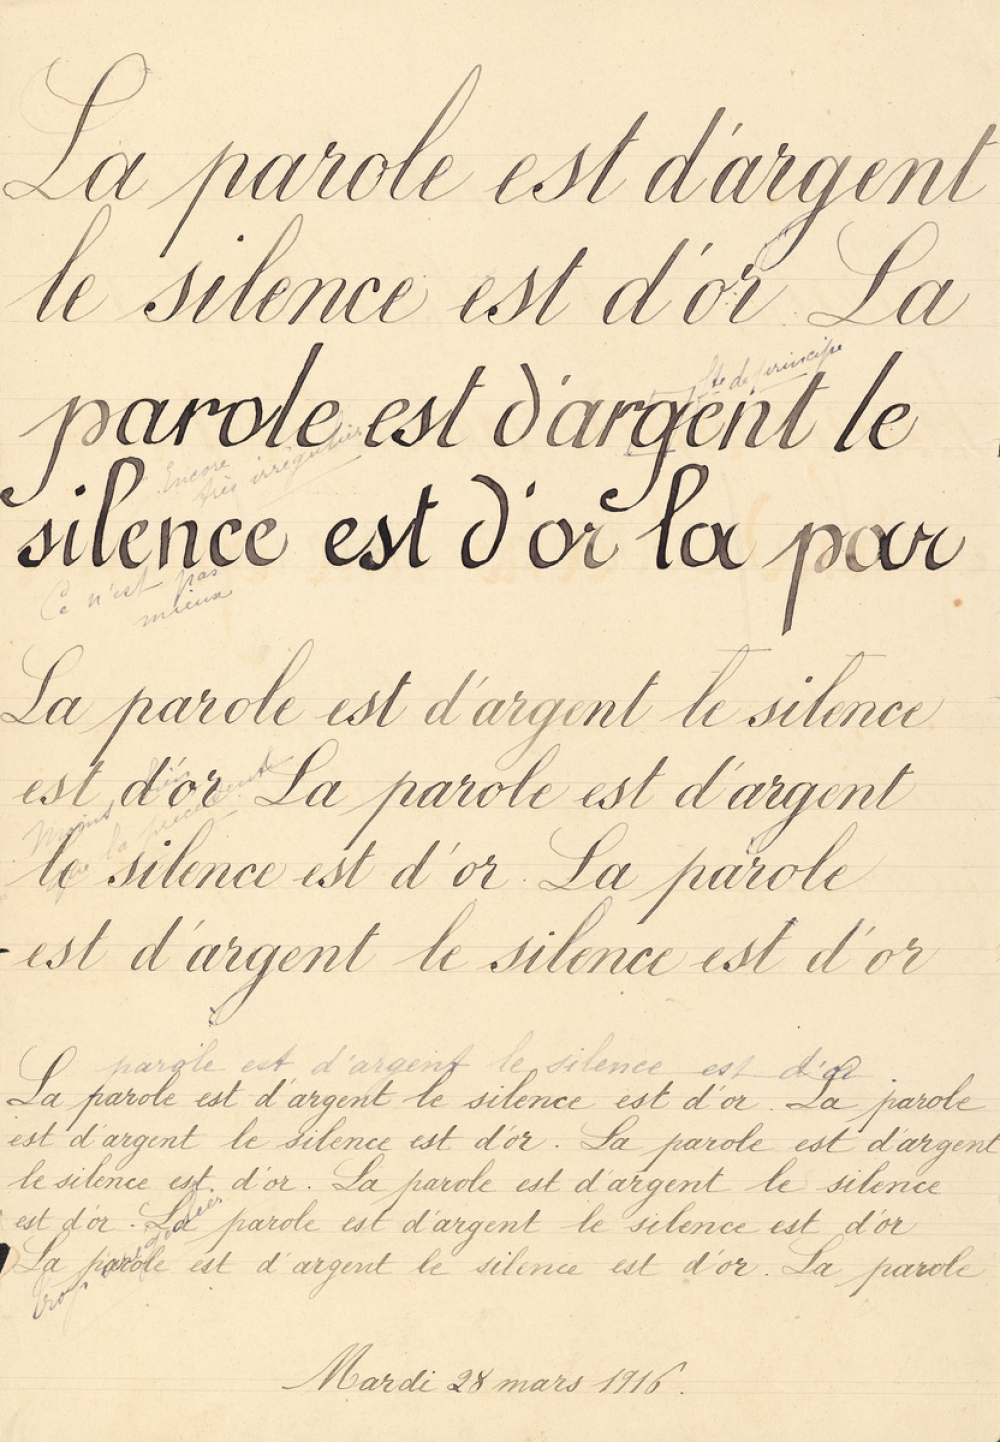 La parole est d'argent
le silence est d'or La
fte de principe
parole est d'argent le
Encore
très irrégulier
silence est d'or la par
Ce n'est pas
mieux
La parole est d'argent le silence
est d'or La parole est d'argent
Moins bien
que la précédente
le silence est d'or. La parole
est d'argent le silence est d'or
parole est d'argent le silence est d'or
La parole est d'argent le silence est d'or. La parole
est d'argent le silence est d'or. La parole est d'argent
le silence est d'or. La parole est d'argent le silence
est d'or. La parole est d'argent le silence est d'or
La parole est d'argent le silence est d'or. La parole
Trop
Mardi 28 mars 1916.